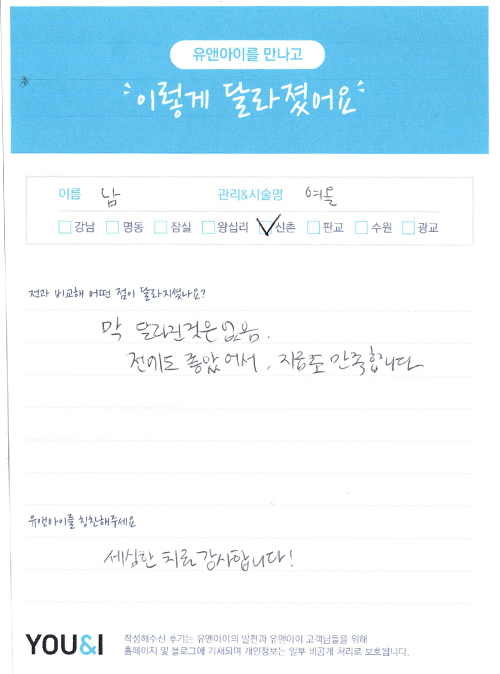 유앤아이를 만나고
이렇게 달라졌어요
이름 남 관리&시술명 여울
강남 명동 잠실 왕십리 신촌 판교 수원 광교
전과 비교해 어떤 점이 달라지셨나요?
막 달라진것은 없음.
전에도 좋았어서, 지금도 만족합니다
유앤아이를 칭찬해주세요
세심한 치료 감사합니다!
YOU&I
작성해주신 후기는 유앤아이의 발전과 유앤아이 고객님들을 위해
홈페이지 및 블로그에 기재되며 개인정보는 일부 비공개 처리로 보호됩니다.